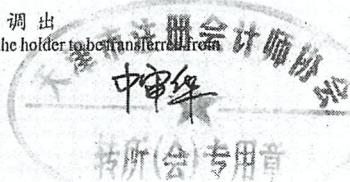 调出
he holder to be transferred from
天津市注册会计师协会
中审华
转所(会)专用章